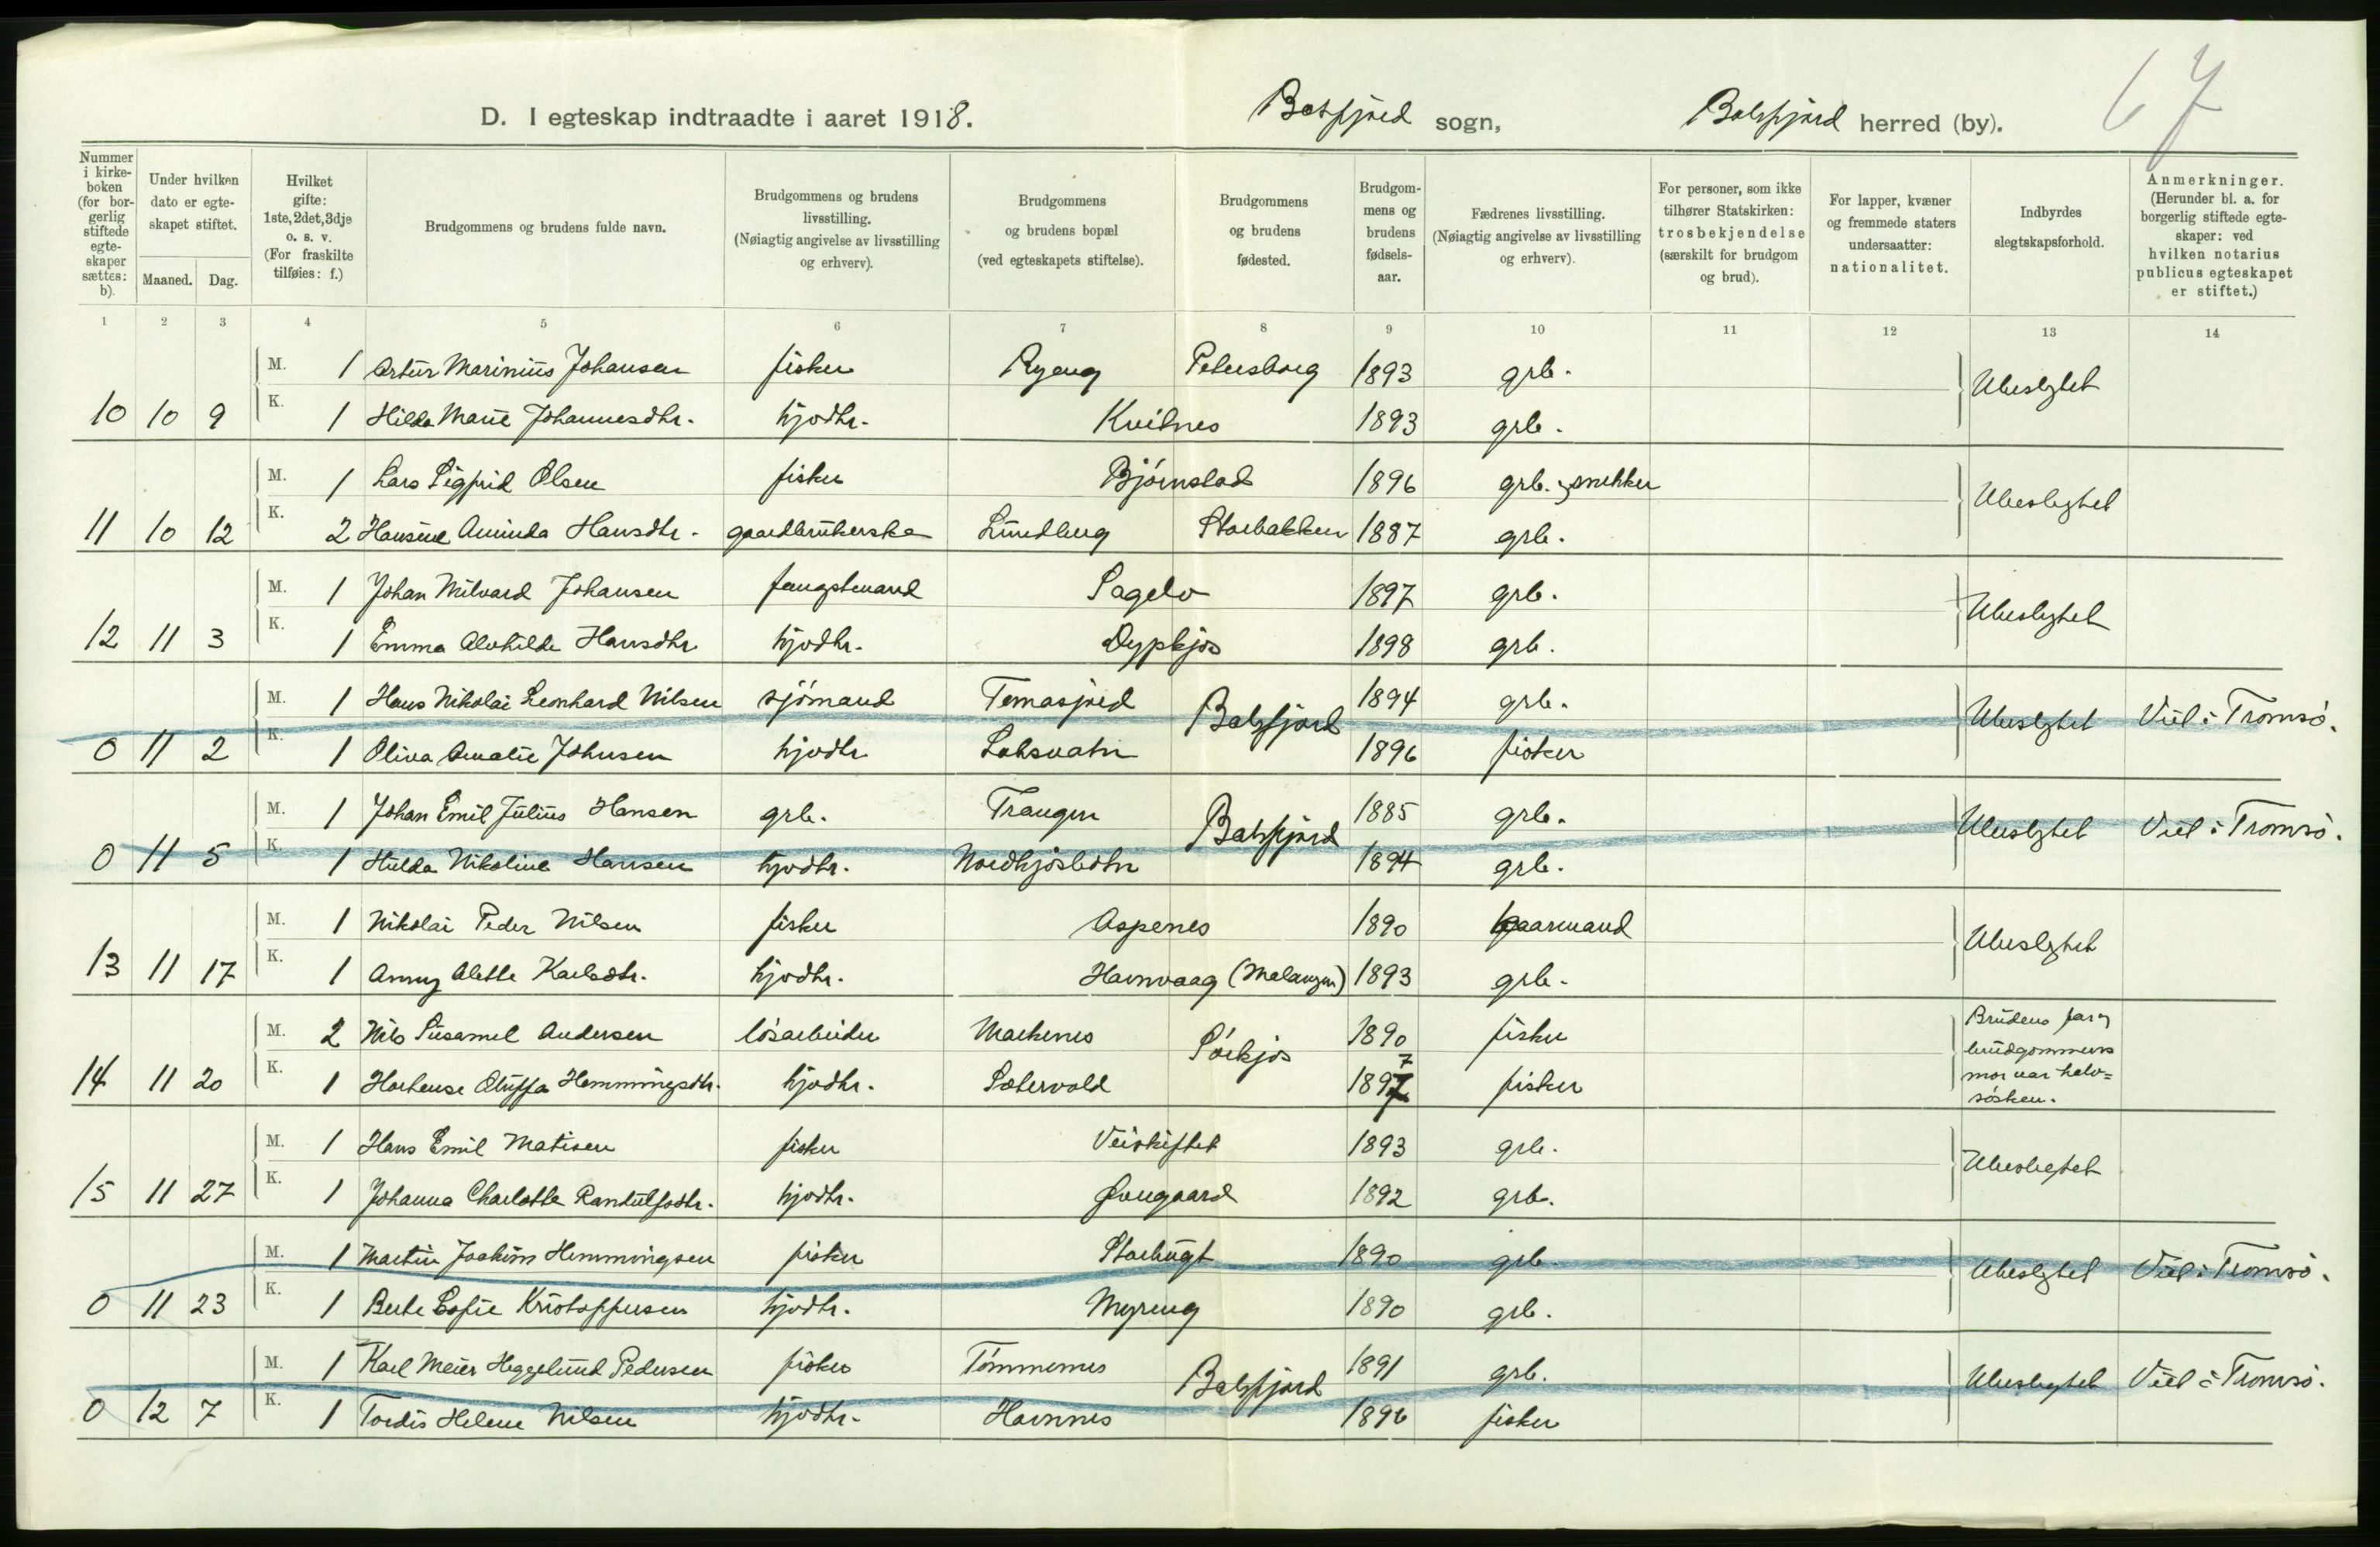 67
D. I egteskap indtraadte i aaret 1918. Balsfjord sogn, Balsfjord herred (by).
Nummer i kirkeboken (for borgerlig stiftede egteskaper sættes: b).
Under hvilken dato er egteskapet stiftet.
Maaned. Dag.
Hvilket gifte: 1ste, 2det, 3dje o. s. v. (For fraskilte tilføies: f.)
Brudgommens og brudens fulde navn.
Brudgommens og brudens livsstilling. (Nøiagtig angivelse av livsstilling og erhverv).
Brudgommens og brudens bopæl (ved egteskapets stiftelse).
Brudgommens og brudens fødested.
Brudgommens og brudens fødselsaar.
Fædrenes livsstilling. (Nøiagtig angivelse av livsstilling og erhverv).
For personer, som ikke tilhører Statskirken: trosbekjendelse (særskilt for brudgom og brud).
For lapper, kvæner og fremmede staters undersaatter: nationalitet.
Indbyrdes slegtskapsforhold.
Anmerkninger. (Herunder bl. a. for borgerlig stiftede egteskaper: ved hvilken notarius publicus egteskapet er stiftet.)
1 2 3 4 5 6 7 8 9 10 11 12 13 14
M. 1 Artur Marinius Johansen fisker Ryeng Petersborg 1893 grb. Ubeslegtet
10 10 9 K. 1 Hilda Marie Johannesdtr. hjodtr. Kvitnes 1893 grb.
M. 1 Lars Sigfrid Olsen fisker Bjørnstad 1896 grb. og snekker Ubeslegtet
11 10 12 K. 2 Hansine Aminda Hansdtr. gaardbrukerske Lundberg Storbakken 1887 grb.
M. 1 Johan Milvard Johansen fangstmand Sagelv 1897 grb. Ubeslegtet
12 11 3 K. 1 Emma Alvhilde Hansdtr hjodtr. Dypkjos 1898 grb.
M. 1 Hans Nikolai Leonhard Nilsen sjømand Tomasjord Balsfjord 1894 grb. Ubeslegtet Viet i Tromsø.
0 11 2 K. 1 Oliva Amalie Johnsen hjodtr Laksvatn 1896 fisker
M. 1 Johan Emil Julius Hansen grb. Trangen Balsfjord 1885 grb. Ubeslegtet Viet i Tromsø.
0 11 5 K. 1 Hulda Nikoline Hansen hjodtr. Nordkjosbotn 1894 grb.
M. 1 Nikolai Peder Nilsen fisker Aspenes 1890 kaarmand Ubeslegtet
13 11 17 K. 1 Anny Alette Karlsdtr. hjodtr. Havnvaag (Malangen) 1893 grb.
M. 2 Nils Susamel Andersen løsarbeider Markenes Sørkjos 1890 fisker Brudens far og
brudgommens
mor var halv=
søsken.
14 11 20 K. 1 Hortense Oluffa Hemmingsdtr. hjodtr. Sætervold 1897 7 fisker
M. 1 Hans Emil Matisen fisker Veiskiftet 1893 grb. Ubeslegtet
15 11 27 K. 1 Johanna Charlotte Randulfsdtr. hjodtr. Øvregaard 1892 grb.
M. 1 Martin Joakim Hemmingsen fisker Storbugt 1890 grb. Ubeslegtet Viet i Tromsø.
0 11 23 K. 1 Berte Sofie Kristoffersen hjodtr. Myreng 1890 grb.
M. 1 Karl Meier Heggelund Pedersen fisker Tømmernes Balsfjord 1891 grb. Ubeslegtet Viet i Tromsø.
0 12 7 K. 1 Tordis Helene Nilsen hjodtr. Havnnes 1896 fisker